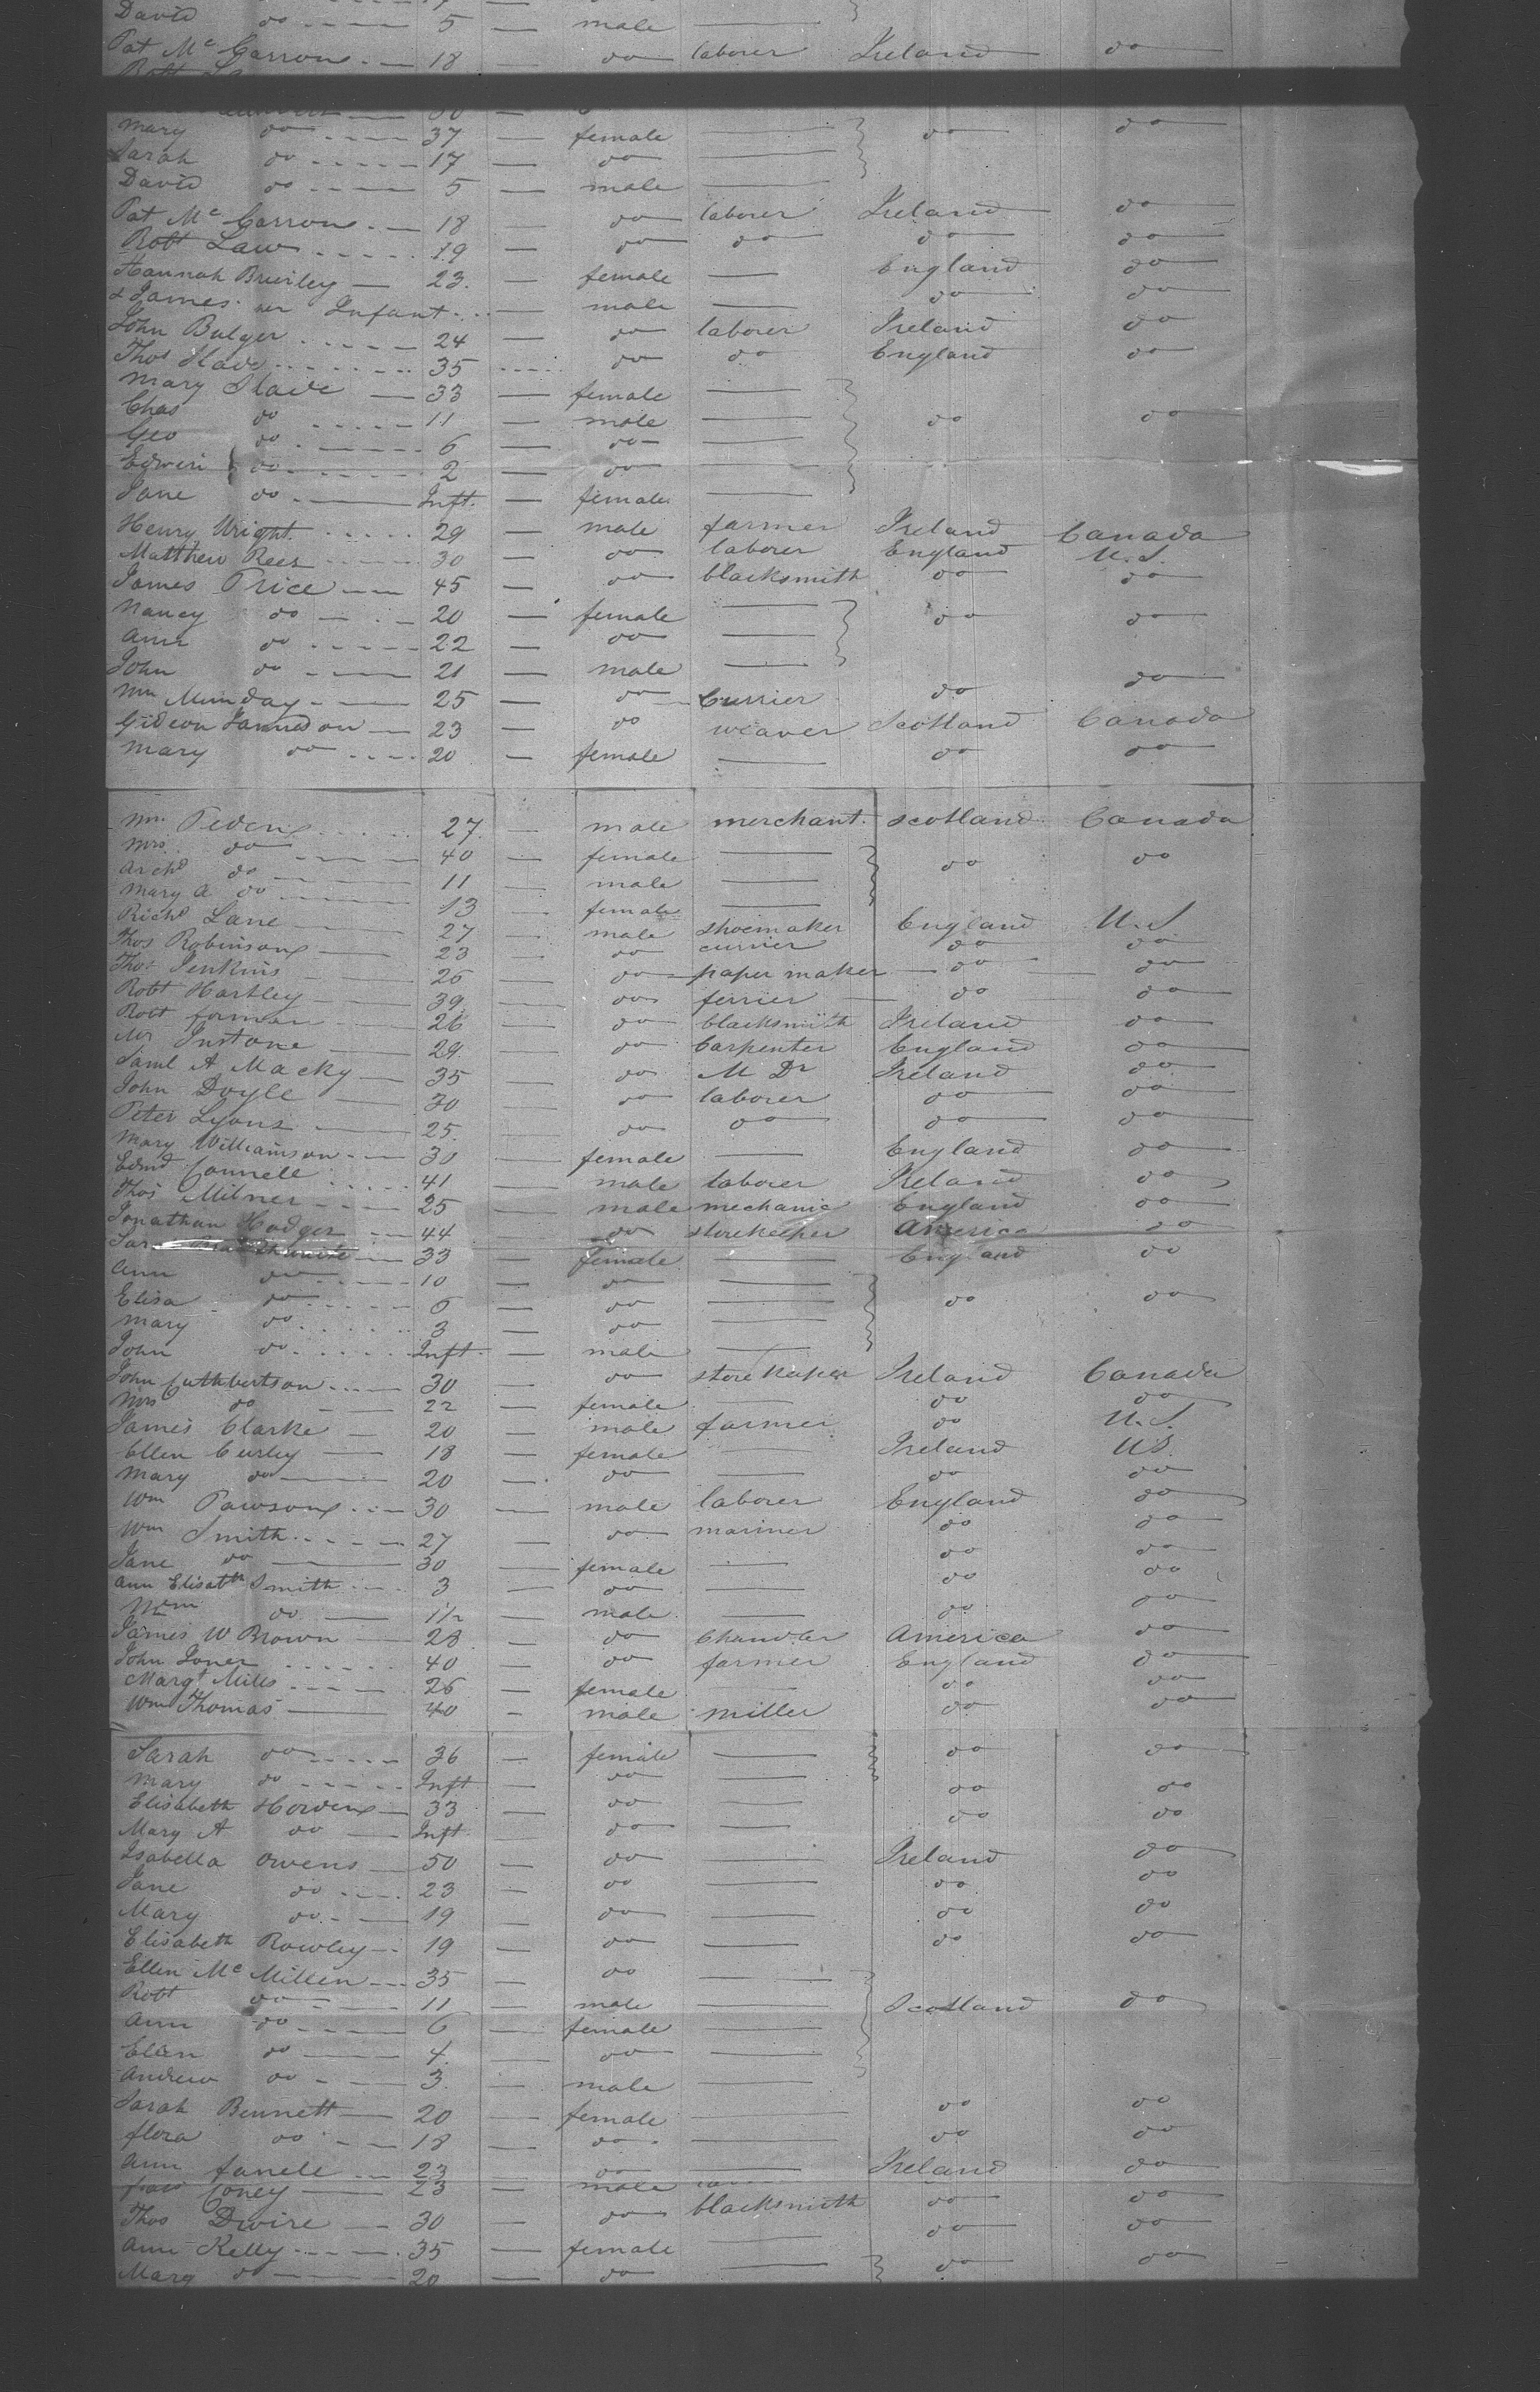 David do 5 male
Pat McCarron 18 do laborer Ireland do
Mary do 37 female do do
Sarah do 17 do
David do 5 male
Pat McCarron 18 do laborer Ireland do
Robt Law 19 do do do do
Hannah Brierley 23 female England do
& James her Infant male do do
John Bulger 24 do laborer Ireland do
Thos Slade 35 do do England do
Mary Slade 33 female
Chas do 11 male do do
Geo do 6 do
Edwin do 2 do
Jane do Inft. female
Henry Wright 29 male farmer Ireland Canada
Matthew Rees 30 do laborer England U.S.
James Price 45 do blacksmith do do
Nancy do 20 female do do
Ann do 22 do
John do 21 male
Wm Munday 25 do Currier do do
Gideon Jamieson 23 do weaver Scotland Canada
Mary do 20 female do do
Wm Peden 27 male merchant Scotland Canada
Mrs do 40 female do do
Archd do 11 male
Mary A do 13 female
Richd Lane 27 male shoemaker England U.S
Thos Robinson 23 do currier do do
Thos Jenkins 26 do paper maker do do
Robt Hartley 39 do ferrier do do
Robt forman 26 do blacksmith Ireland do
Mr Instone 29 do Carpenter England do
Saml A Macky 35 do M Dr Ireland do
John Doyle 30 do laborer do do
Peter Lyons 25 do do do do
Mary Williamson 30 female England do
Edmd Connell 41 male laborer Ireland do
Thos Milner 25 male mechanic England do
Jonathan Hodger 44 do storekeeper America do
33 female England do
Ann do 10 do
Elisa do 6 do do do
Mary do 3 do
John do Inft male
John Cuthbertson 30 do store keeper Ireland Canada
Mrs do 22 female do do
James Clarke 20 male farmer do U.S.
Ellen Curley 18 female Ireland US.
Mary do 20 do do do
Wm Pawson 30 male laborer England do
Wm Smith 27 do mariner do do
Jane do 30 female do do
Ann Elisabth Smith 3 do do do
Wm do 1½ male do do
James W Brown 28 do Chandler America do
John Jones 40 do farmer England do
Margt Mills 26 female do do
Wm Thomas 40 male miller do do
Sarah do 36 female do do
Mary do Inft do do do
Elisabeth Howden 33 do do do
Mary A do Inft do
Isabella Owens 50 do Ireland do
Jane do 23 do do do
Mary do 19 do do do
Elisabeth Rowley 19 do do do
Ellen McMillen 35 do
Robt do 11 male Scotland do
Ann do 6 female
Ellen do 4 do
Andrew do 3 male
Sarah Bennett 20 female do do
flora do 18 do do do
Ann 23 do Ireland do
Coney 23 male do do
Thos Dwire 30 do blacksmith do do
Ann Kelly 35 female do do
Mary do 20 do